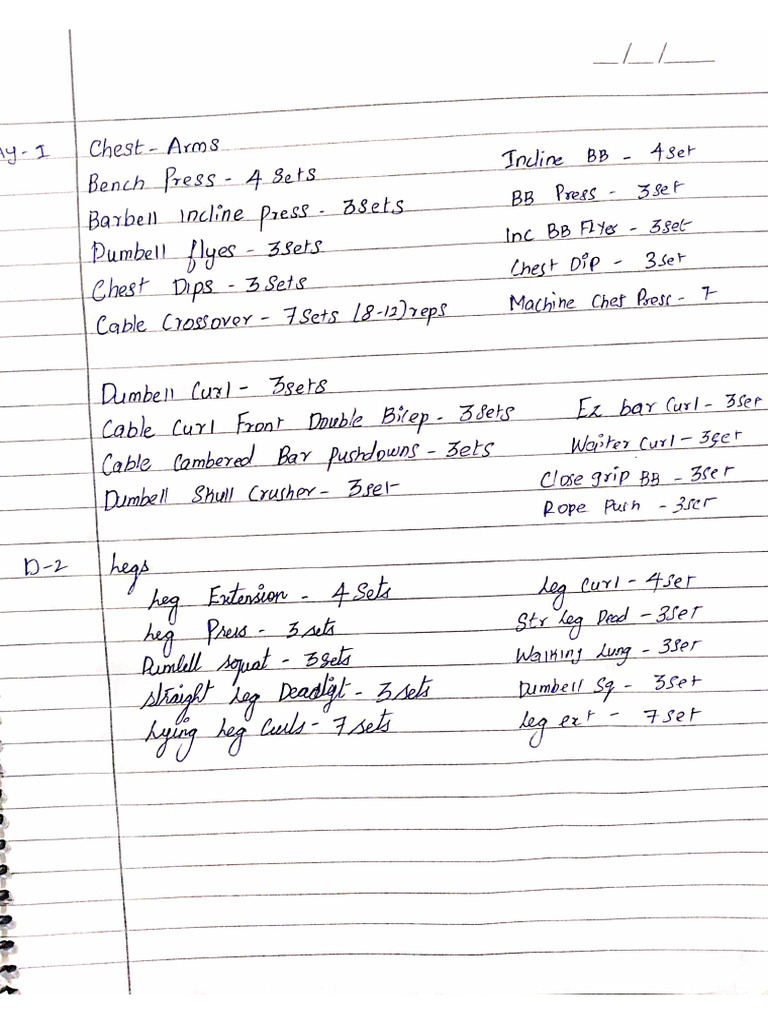 __/__/____
ay-I Chest-Arms
Incline BB - 4set
Bench Press - 4 Sets
BB Press - 3set
Barbell Incline press - 3sets
Inc BB Flyes - 3set
Dumbell flyes - 3sets
Chest Dip - 3set
Chest Dips - 3Sets
Machine Chest Press - 7
Cable Crossover - 7sets (8-12)reps
Dumbell Curl - 3sets
Ez bar Curl - 3set
Cable Curl Front Double Bicep - 3sets
Waiter Curl - 3set
Cable Cambered Bar pushdowns - 3ets
Close grip BB - 3set
Dumbell Skull Crusher - 3set
Rope Push - 3set
D-2 Legs
Leg Extension - 4 Sets
Leg Curl - 4set
Leg Press - 3 sets
Str Leg Dead - 3Set
Dumbell squat - 3sets
Walking Lung - 3set
straight leg Deadligt - 3sets
Dumbell Sq - 3set
Lying Leg Curls - 7 sets
Leg ext - 7 set